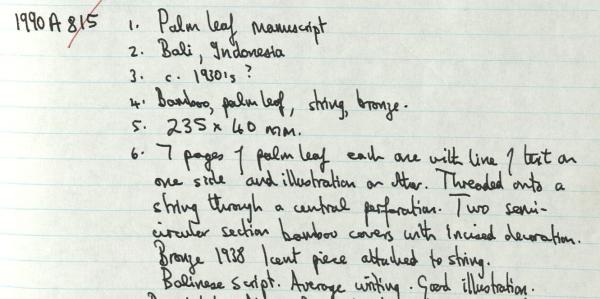 1990 A 815 1. Palm leaf manuscript
2. Bali, Indonesia
3. c. 1930's ?
4. Bamboo, palm leaf, string, bronze.
5. 235 x 40 mm.
6. 7 pages of palm leaf each one with line of text on
one side and illustration on other. Threaded onto a
string through a central perforation. Two semi-
circular section bamboo covers with incised decoration.
Bronze 1938 1 cent piece attached to string.
Balinese script. Average writing. Good illustration.